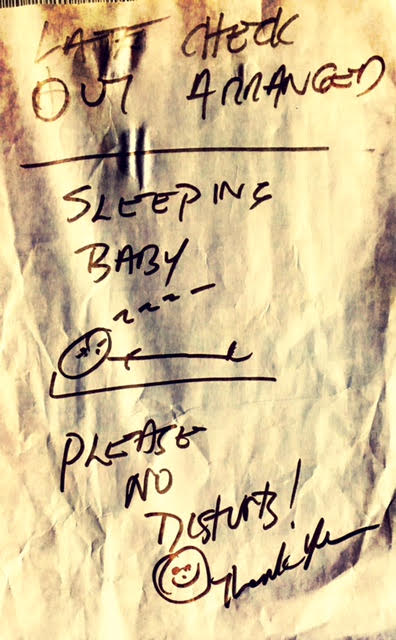 LATE CHECK
OUT ARRANGED
SLEEPING
BABY
PLEASE
NO
DISTURB!
Thank you